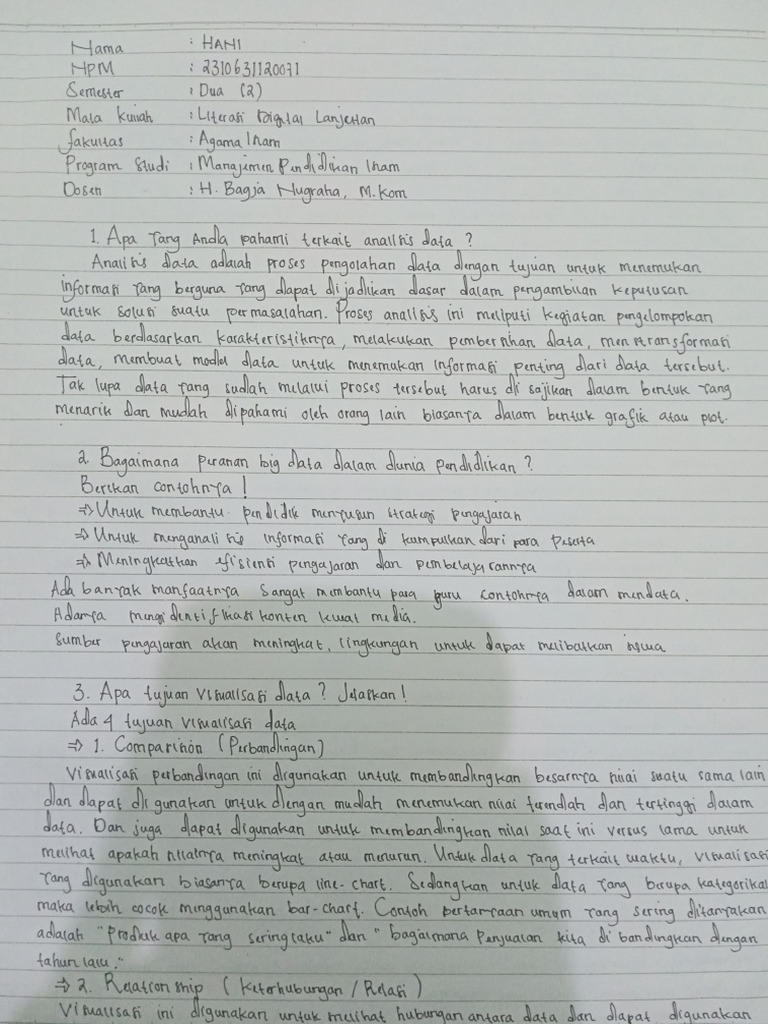 Nama : HANI
NPM : 2310631120071
Semester : Dua (2)
Mata kuliah : Literasi Digital Lanjutan
fakultas : Agama Islam
Program Studi : Manajemen Pendidikan Islam
Dosen : H. Bagja Nugraha, M.Kom
1. Apa Yang Anda pahami terkait analisis data ?
Analisis data adalah proses pengolahan data dengan tujuan untuk menemukan
informasi yang berguna yang dapat dijadikan dasar dalam pengambilan keputusan
untuk solusi suatu permasalahan. Proses analisis ini meliputi kegiatan pengelompokan
data berdasarkan karakteristiknya, melakukan pembersihan data, mentransformasi
data, membuat model data untuk menemukan informasi penting dari data tersebut.
Tak lupa data yang sudah melalui proses tersebut harus di sajikan dalam bentuk yang
menarik dan mudah dipahami oleh orang lain biasanya dalam bentuk grafik atau plot.
2. Bagaimana peranan big data dalam dunia pendidikan ?
Berikan contohnya !
⇒ Untuk membantu pendidik menyusun strategi pengajaran
⇒ Untuk menganalisis informasi yang di kumpulkan dari para peserta
⇒ Meningkatkan efisiensi pengajaran dan pembelajarannya
Ada banyak manfaatnya sangat membantu para guru contohnya dalam mendata.
Adanya mengidentifikasi konten kwal media.
Sumber pengajaran akan meningkat, lingkungan untuk dapat melibatkan siswa
3. Apa tujuan visualisasi data ? Jelaskan !
Ada 4 tujuan visualisasi data
⇒ 1. Comparison (Perbandingan)
Visualisasi perbandingan ini digunakan untuk membandingkan besarnya nilai suatu sama lain
dan dapat di gunakan untuk dengan mudah menemukan nilai terendah dan tertinggi dalam
data. Dan juga dapat digunakan untuk membandingkan nilai saat ini versus lama untuk
melihat apakah nilainya meningkat atau menurun. Untuk data yang terkait waktu, visualisasi
yang digunakan biasanya berupa line-chart. Sedangkan untuk data yang berupa kategorikal
maka lebih cocok menggunakan bar-chart. Contoh pertanyaan umum yang sering ditanyakan
adalah "Produk apa yang sering laku" dan "bagaimana Penjualan kita di bandingkan dengan
tahun lalu."
⇒ 2. Relationship (Keterhubungan / Relasi)
Visualisasi ini digunakan untuk melihat hubungan antara data dan dapat digunakan